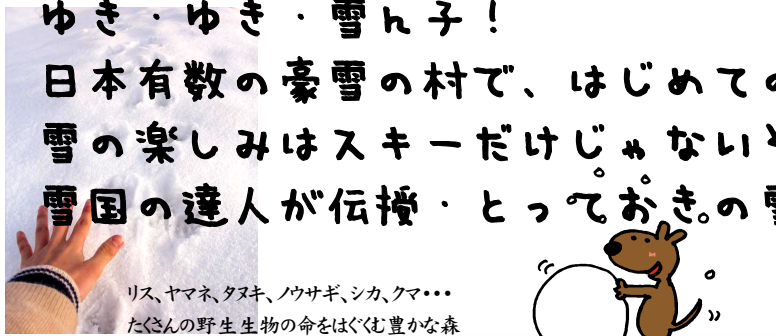 ゆき・ゆき・雪ん子！
日本有数の豪雪の村で、はじめての
雪の楽しみはスキーだけじゃない
雪国の達人が伝授・とっておきの雪
リス、ヤマネ、タヌキ、ノウサギ、シカ、クマ・・・
たくさんの野生生物の命をはぐくむ豊かな森